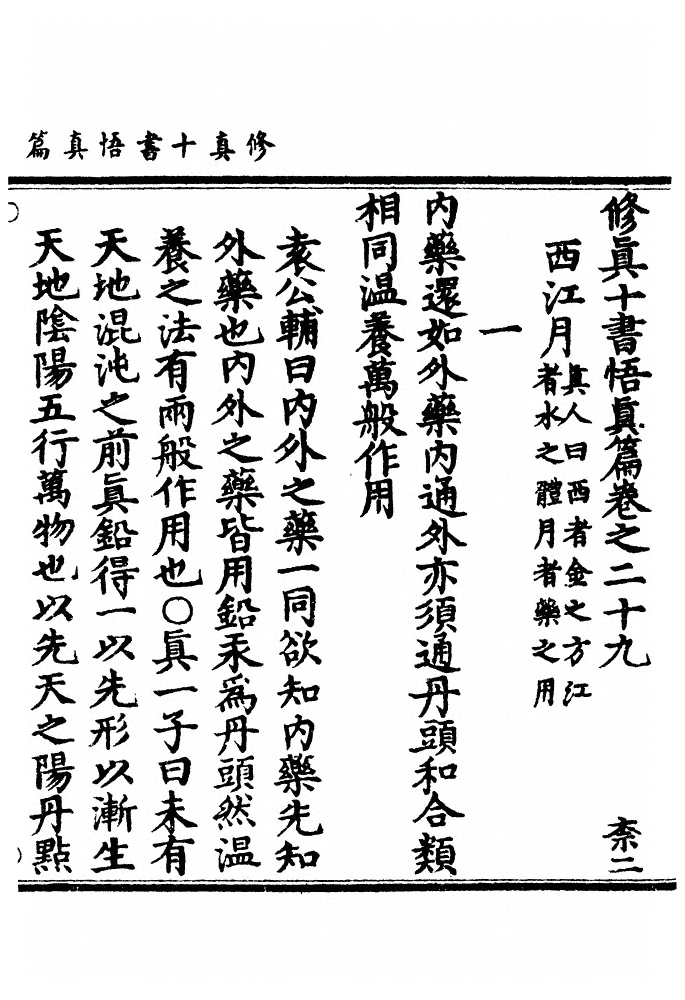 修真十書悟真篇
修眞十書悟眞篇卷之二十九 柰二
西江月
真人曰西者金之方江
者水之體月者藥之用
一
内藥還如外藥内通外亦須通丹頭和合類
相同温養萬般作用
袁公輔曰内外之藥一同欲知内藥先知
外藥也内外之藥皆用鉛汞爲丹頭然温
養之法有兩般作用也〇眞一子曰未有
天地混沌之前眞鉛得一以先形以漸生
天地陰陽五行萬物也以先天之陽丹點